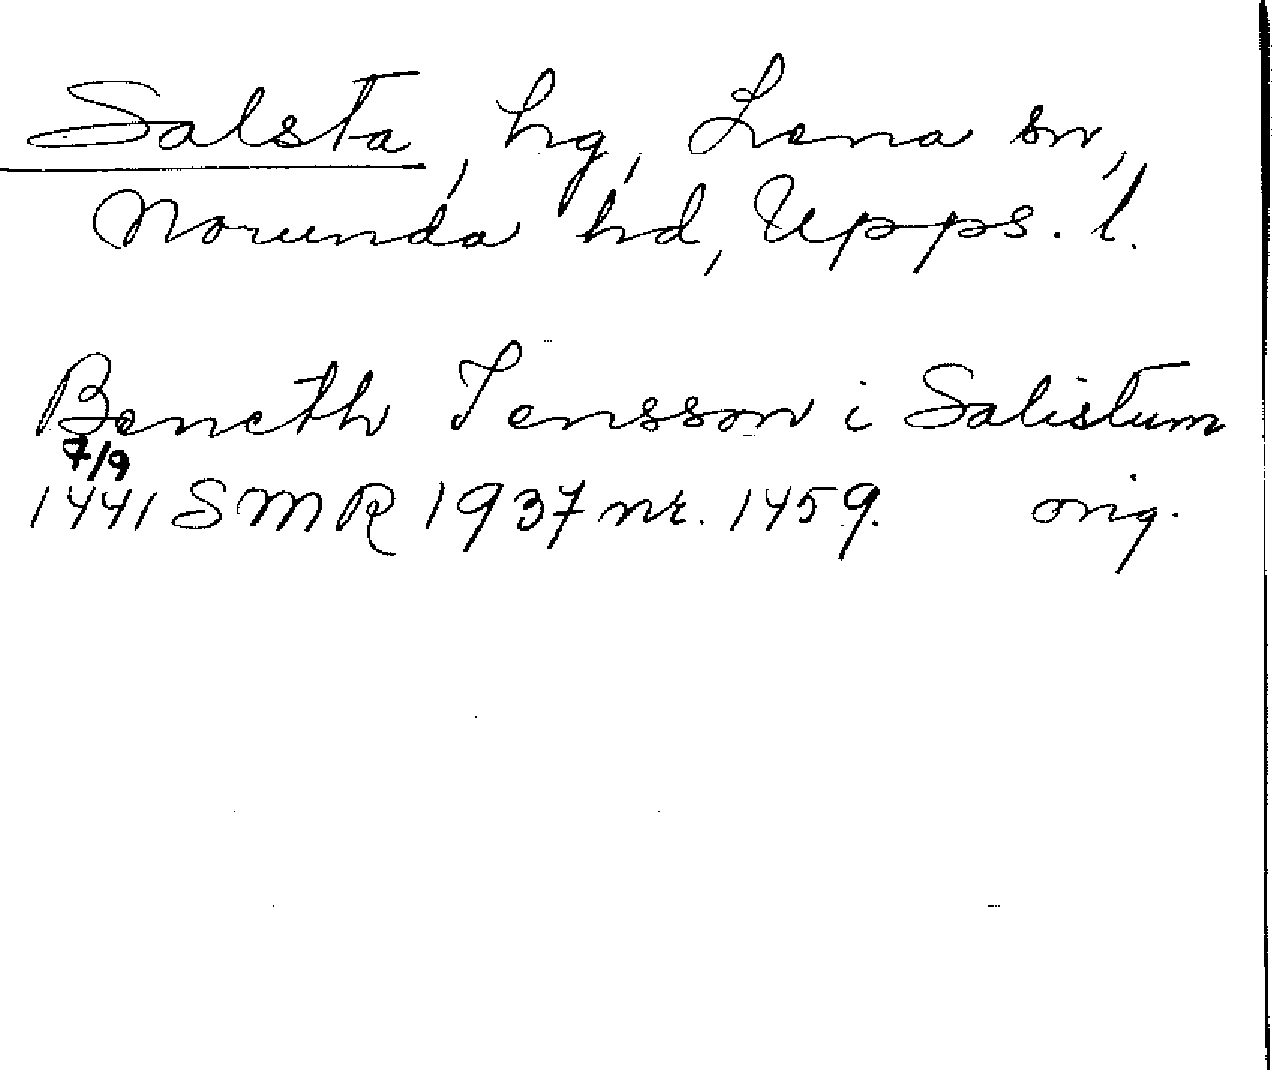 Salsta, hg, Lena sn,
Norunda hd, Upps. l.
Beneth Jensson i Salistum
7/9
1441 SMR 1937 nr. 1459. orig.